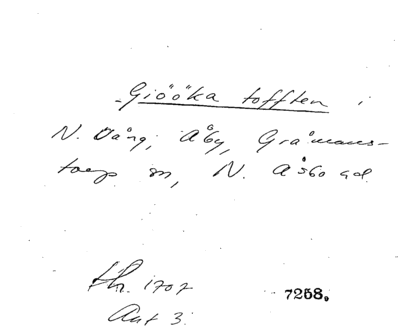 Giööka tofften i
N. Vång, Åby, Gråmans-
torp sn, N. Åsbo hd.
Lm. 1707
Akt 3.
7258.